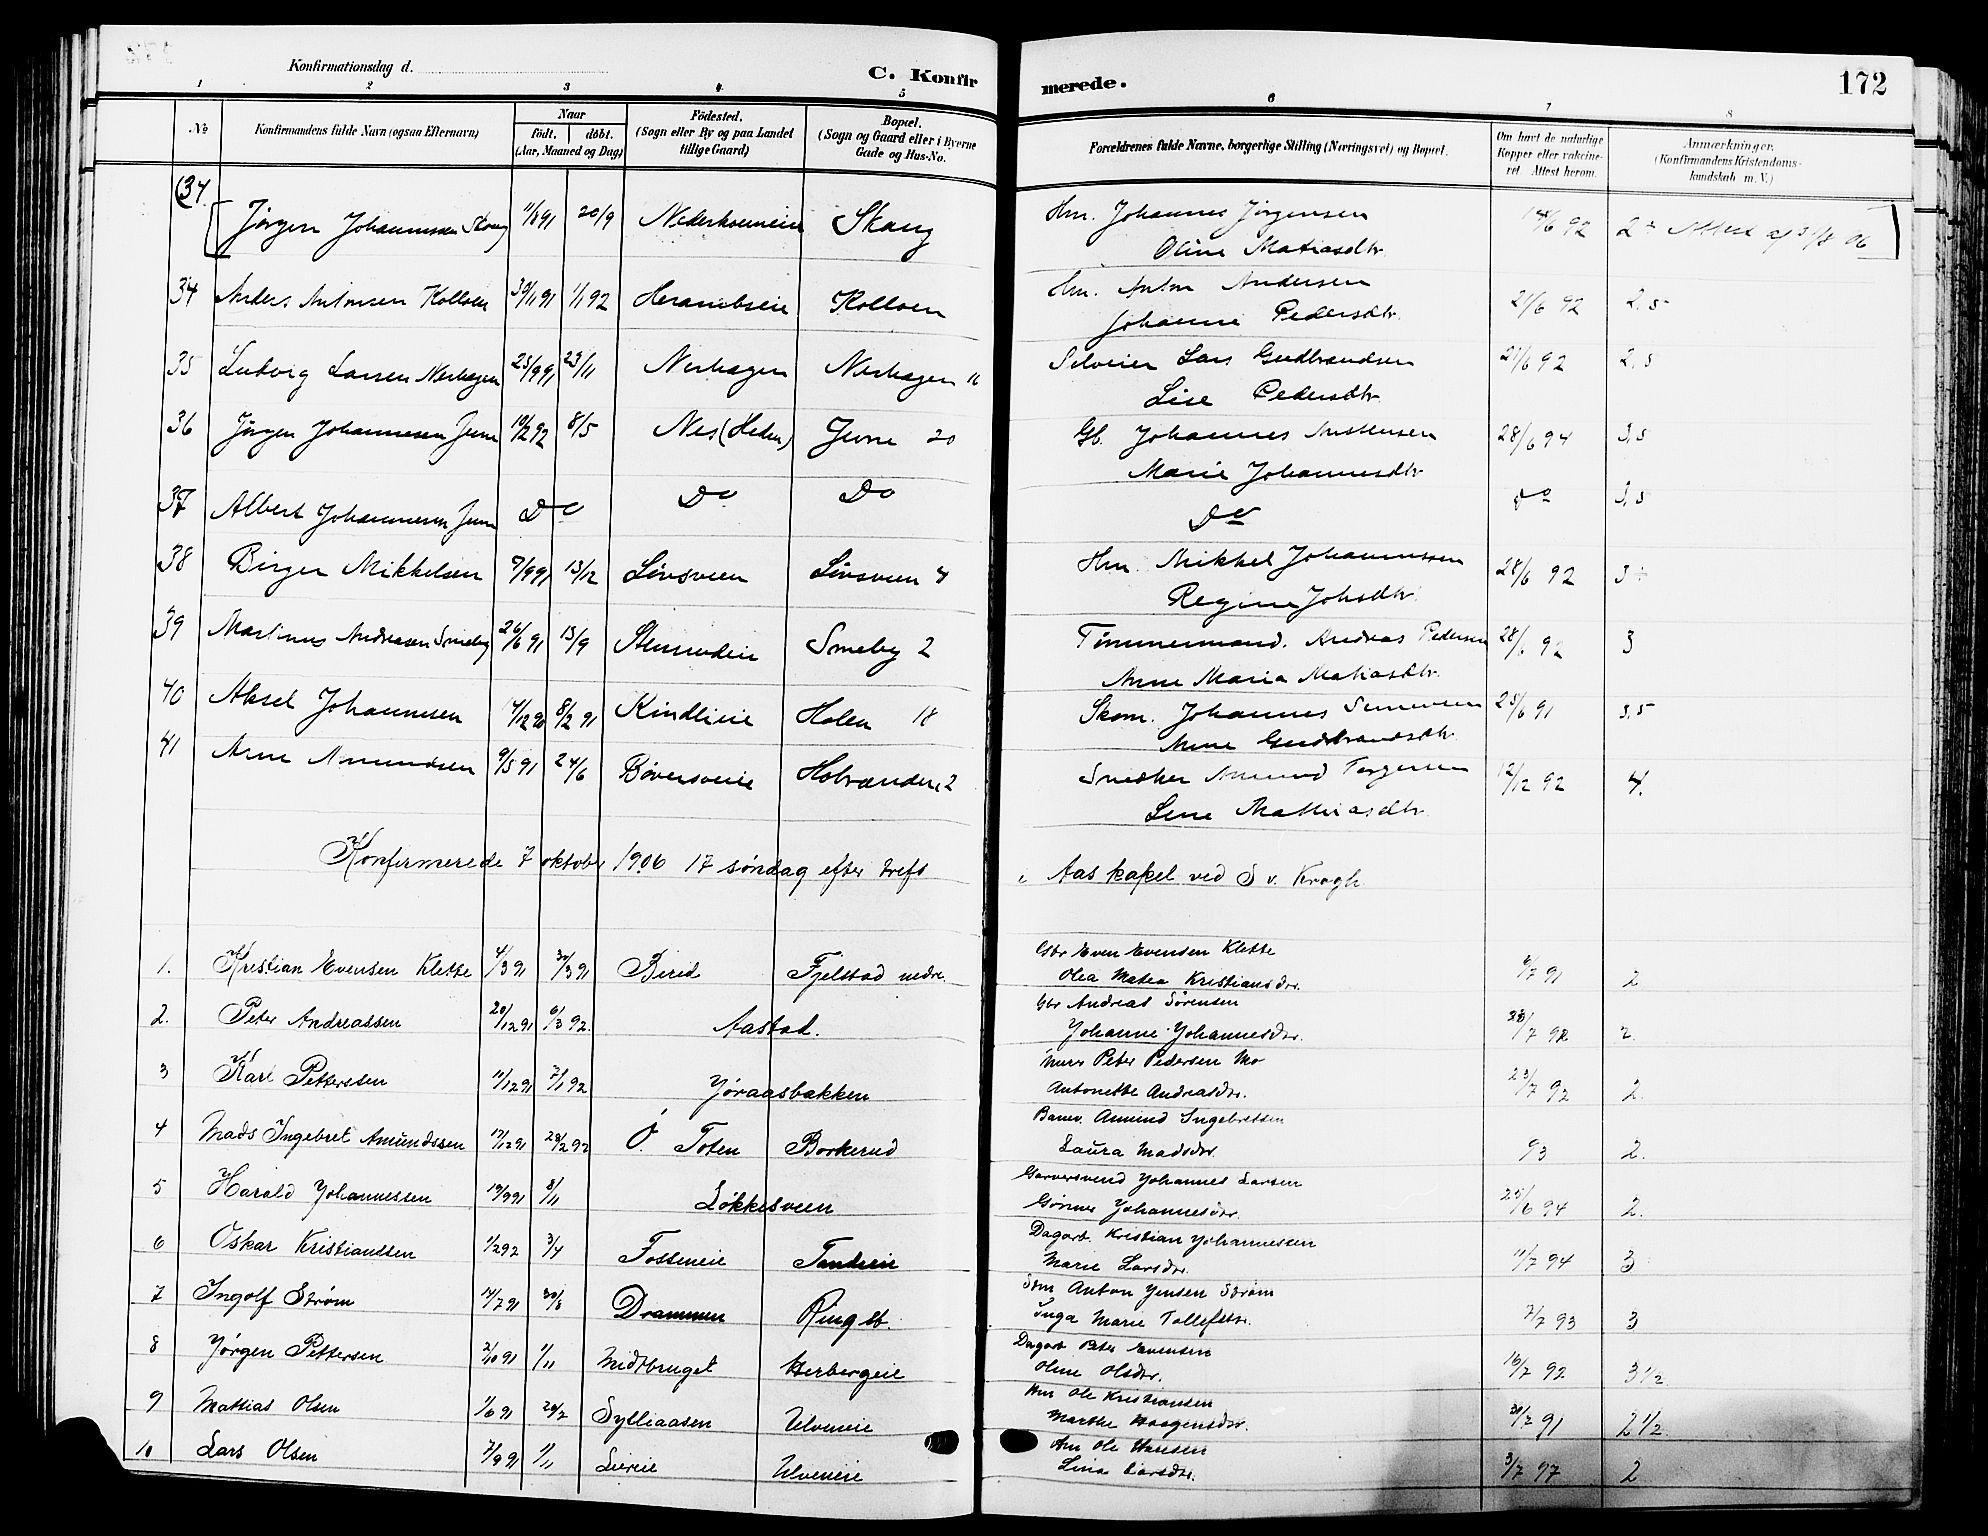 Konfirmationsdag d.
C. Konfir
merede.
172
1 2 3 4 5 6 7 8
No
Konfirmandens fulde Navn (ogsaa Efternavn)
Naar
født. døbt.
(Aar, Maaned og Dag)
Fødested.
(Sogn eller By og paa Landet
tillige Gaard)
Bopæl.
(Sogn og Gaard eller i Byerne
Gade og Hus-No.
Forældrenes fulde Navne, borgerlige Stilling (Næringsvei) og Bopæl.
Om havt de naturlige
Kopper eller vakcine-
ret. Attest herom.
Anmærkninger.
(Konfirmandens Kristendoms-
kundskab m. V.)
(34 Jørgen Johannessen Skaug 20/9 Skaug Hm. Johannes Jørgensen 14/6 92
Oline Matiasdtr.
34 Anders Antonsen Kolloen 30/11 91 1/1 92 Kolloen Hm. Anton Andersen 21/6 92 2,5
Johanne Pedersdtr.
35 Ludvig Larsen Nerhagen 25/9 91 23/11 Nerhagen Nerhagen 16 Selveier Lars Gudbrandsen 21/6 92 2,5
Lise Pedersdtr.
36 Jørgen Johannesen Jevne 10/2 92 8/5 Nes (Hedm) Jevne 20 Gb. Johannes 28/6 94 3,5
Marie Johannesdtr
37 Albert Johannesen Jevne Do Do Do Do Do 3,5
38 Birger Mikkelsen 7/9 91 13/12 Linsveen Linsveen 4 Hm. Mikkel Johannessen 28/6 92 3÷
Regine Johsdtr.
39 Martinus Andreasen Smeby 26/6 91 13/9 Smeby 2 Tømmermand. Andreas Pedersen 28/6 92 3
Anne Maria Matiasdtr.
40 Aksel Johannesen 14/12 90 8/2 91 Kindlieie Holen 18 Skom. Johannes Simensen 25/6 91 3,5
Anne Gudbrandsdtr.
41 Arne Amundsen 9/5 91 24/6 Bøversveie 2 Snedker Amund Torgersen 12/12 92 4.
Lene Mathiasdtr.
Konfirmerede 7 oktober 1906 17 søndag efter trefs i Aas kapel ved S v. Krogh.
1. Kristian Evensen Klette 4/3 91 30/3 91 Birid Fjelstad nedre. Gbr Even Evensen Klette 9/7 91 2
Olea Matea Kristiansdr.
2. Peter Andreassen 20/12 91 6/3 92. Aastad. Gbr Andreas Sørensen 28/7 92 2.
Johanne Johannesdr.
3 Karl Petterssen 11/12 91 7/1 92 Jøraasbakken Murer Peter Pedersen Mo 23/7 92 2.
Antonette Andreasdr.
4 Mads Ingebret Amundssen 17/12 91 28/2 92 Ø. Toten Borkerud Banev. Amund Ingebretsen 93 2.
Laura Madsdr.
5 Harald Johannessen 19/9 91 8/11 Løkkesveen Garversvend Johannes Larsen 25/6 94 2.
Johannesdr.
6 Oskar Kristianssen 1/2 92 3/4 Fosseneie Dagarb. Kristian Johannessen 11/7 94 3
Marie Larsdr.
7 Ingolf Strøm 14/7 91 30/8 Drammen Ringst. Anton Jensen Strøm 7/7 93 3
Inga Marie Tollefsdr.
8 Jørgen Pettersen 2/10 91 1/11 Midtbruget Herbergeie Dagarb Peter Evensen 16/7 92 3 1/2.
Oline Olsdr.
9 Mattias Olsen 1/6 91 26/7 Sylliaasen Ulveneie Hm Ole Kristiansen 30/7 91 2 1/2.
Marthe Haagensdr.
10 Lars Olsen 7/9 91 1/11 Lieeie Ulveneie Hm Ole Hansen 3/7 97 2
Lina Larsdr.